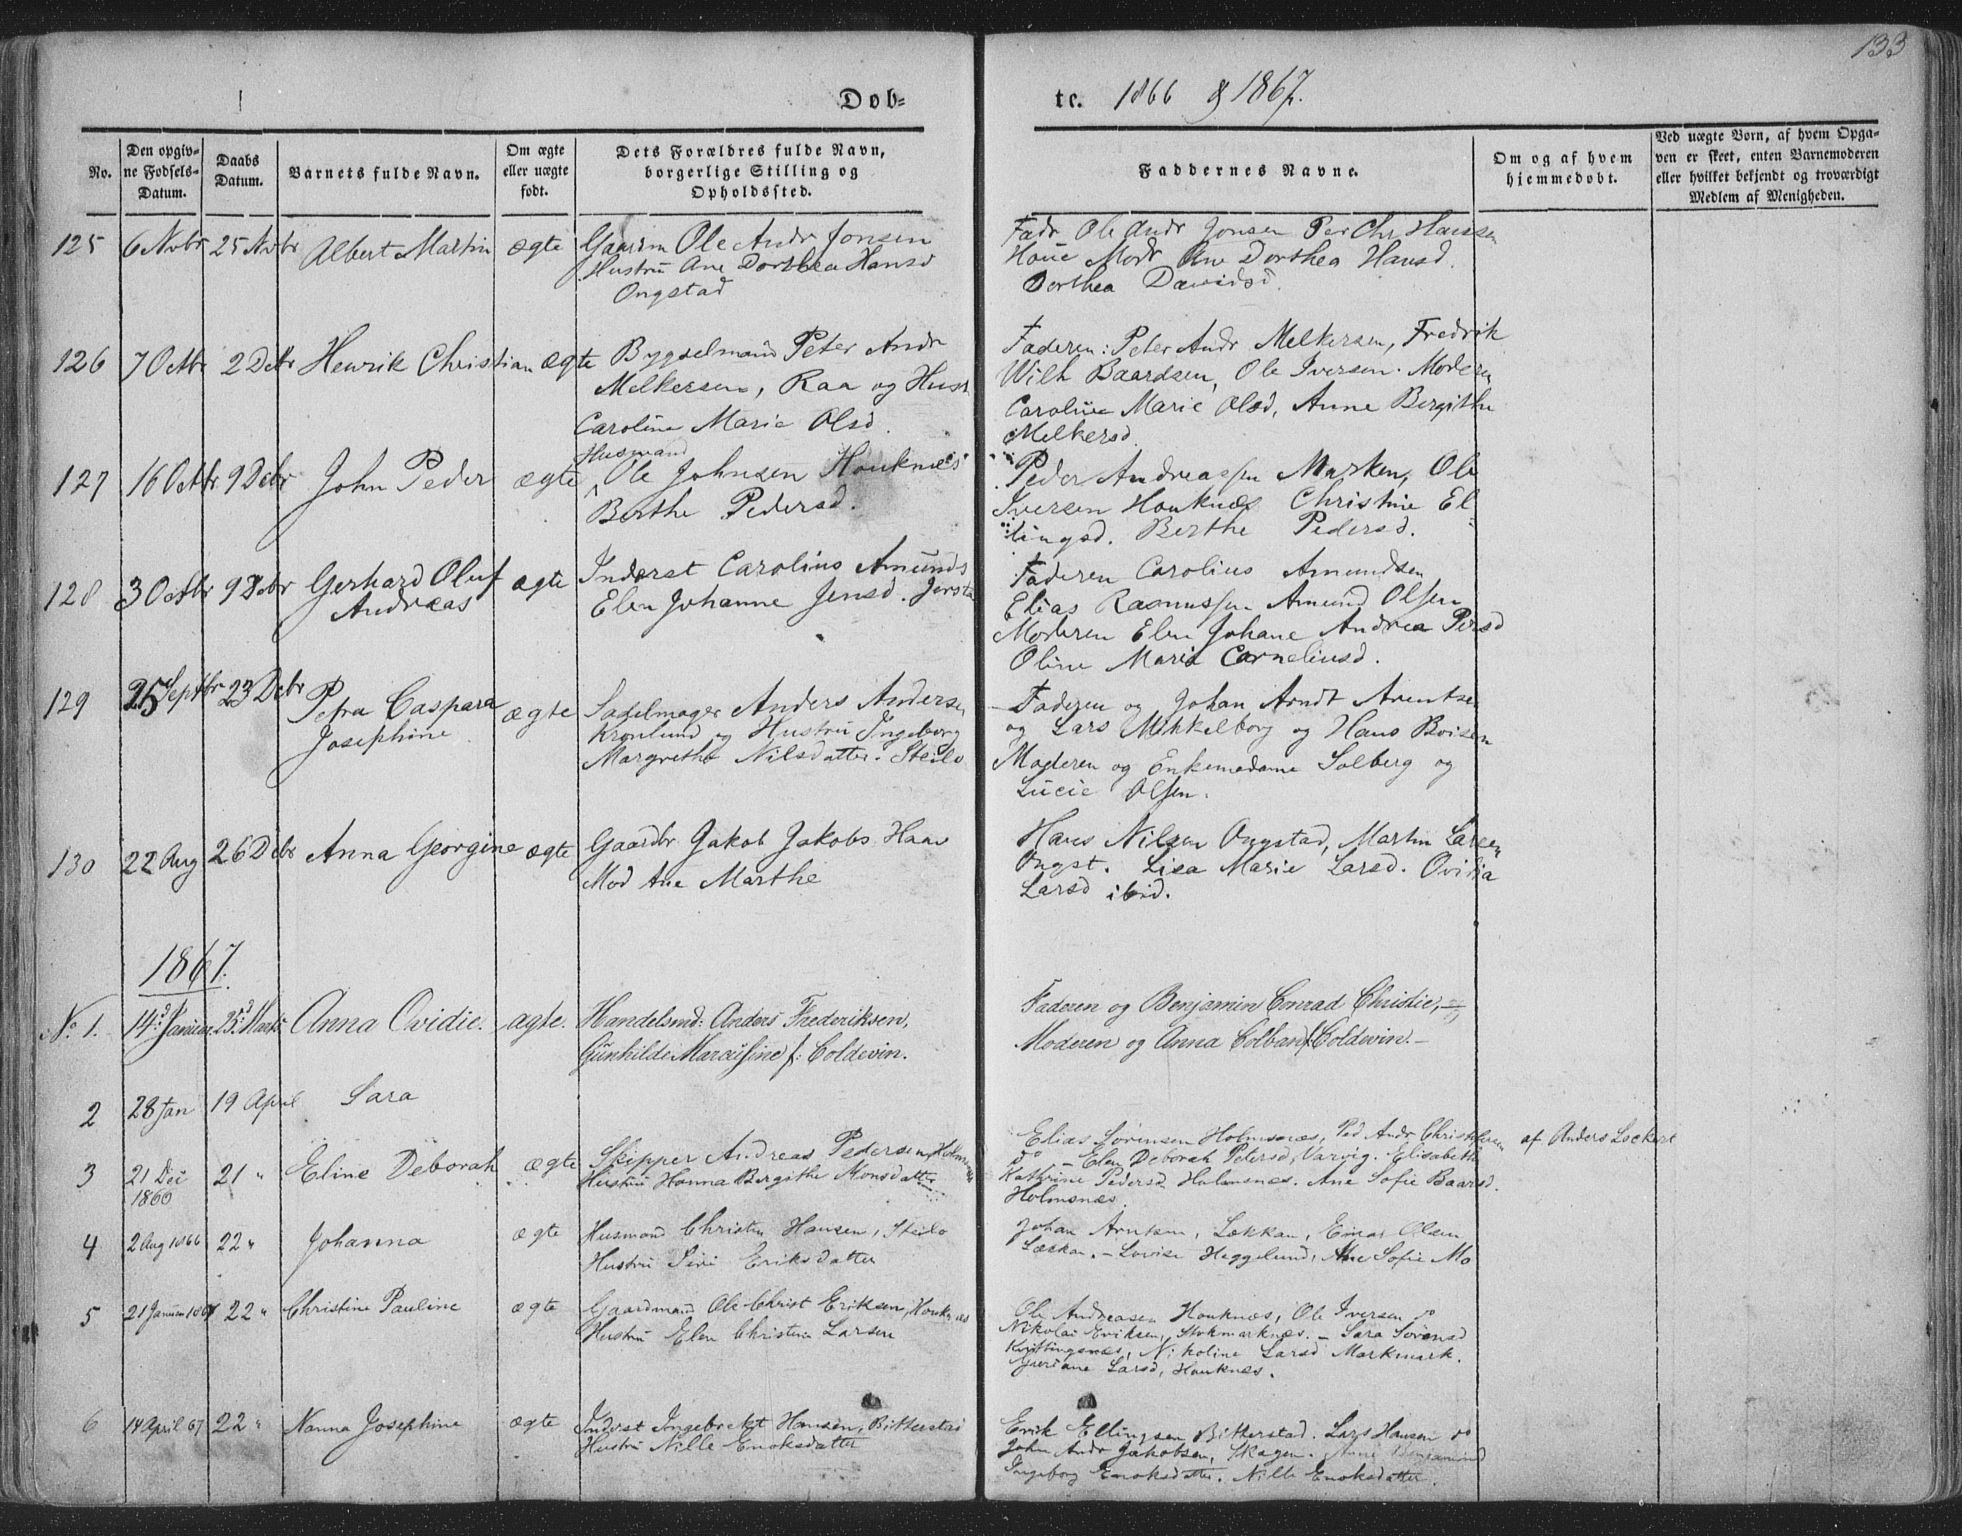 133
Døb-
te. 1866 & 1867.
No.
Den opgiv-
ne Fødsels-
Datum.
Daabs
Datum.
Barnets fulde Navn.
Om ægte
eller uægte
født.
Dets Forældres fulde Navn,
borgerlige Stilling og
Opholdssted.
Faddernes Navne.
Om og af hvem
hjemmedøbt.
Ved uægte Børn, af hvem Opga-
ven er skeet, enten Barnemoderen
eller hvilket bekjendt og troværdigt
Medlem af Menigheden.
125 6 Novbr 25 Novbr Albert Martin ægte Gaardm Ole Andr Jonsen
Hustru Ane Dorthea Hansd
Ongstad
Fadr Ole Andr Jonsen Per Chr Hansen
Houe Modr Ane Dorthea Hansd.
Dorthea Davidsd.
126 7 Octbr 2 Debr Henrik Christian ægte Bygselmand Peter Andr
Melkersen, Raa og Hustr
Caroline Marie Olsd.
Faderen: Peter Andr Melkersen, Fredrik
Wilh Baardsen, Ole Iversen. Moderen
Caroline Marie Olsd, Anne Bergithe
Melkersd.
127 16 Octbr 9 Debr John Peder ægte Husmand
Ole Johnsen Houknes
Berthe Pedersd.
Peder Andreassen Marken, Ole
Iversen Houknæs Christine El-
lingsd. Berthe Pedersd.
128 3 Octbr 9 Debr Gerhard Oluf
Andreas ægte Inderst Carolius Amunds
Elen Johanne Jensd. Jorsta
Faderen Carolius Amundsen
Elias Rasmussen Amund Olsen
Moderen Elen Johane Andrea Persd
Oline Maria Corneliusd.
129 25 Septbr 23 Debr Petra Caspara
Josephine ægte Sadelmager Anders Andersen
Kronlund og Hustru Ingeborg
Margrethe Nilsdatter. Steilo
Faderen og Johan Arndt Arentse
og Lars Mikkelborg og Hans Boisen
Moderen og Enkemadame Solberg og
Lucie Olsen.
130 22 Aug 26 Debr Anna Georgine ægte Gaardbr Jakob Jakobs Haas
Mod Ane Marthe
Hans Nilsen Ongstad, Martin Larsen
Ongst. Lisa Marie Larsd. Ovidia
Larsd ibid.
1867.
No 1. 14d. Januar 25d. Marts Anna Ovidie. ægte. Handelsmd: Anders Frederiksen,
Gunhilde Marcisine f: Coldevin.
Faderen og Benjamin Conrad Christie,
Moderen og Anna Colban f: Coldevin.
2 28 Jan 19 April Sara
3 21 Dec
1866 21 " Eline Deborah ægte Skipper Andreas Pedersen, Holmsnæs
Hustru Hanna Bergithe Monsdatter
Elias Sørensen Holmsnæs, Ped Andr Christofersen
do – Elen Deborah Petersd, Varvig. Elisabeth
Kathrine Pedersd Holmsnæs. Ane Sofie Baarsd.
Holmsnæs
af Anders Lockert
4 2 Aug 1866 22 " Johanna ægte Husmand Christen Hansen, Steilo
Hustru Siri Eriksdatter
Johan Arntsen, Lækkan, Einar Olsen
Læskan. – Lovise Heggelund, Ane Sofie Mo
5 21 Januar 1867 22 " Christine Pauline ægte Gaardmand Ole Christ Eriksen, Houknæs
Hustru Elen Christine Larsen
Ole Andreasen Houknæs, Ole Iversen do
Nikolai Eriksen, Stokmarknæs. – Sara Sørensd
Kvittingsnæs, Nikoline Larsd Markmark.
Guriane Larsd, Houknæs.
6 14 April 67 22 " Nanna Josephine ægte Inderst Ingebrekt Hansen, Bitterstad
Hustru Nille Enoksdatter
Erik Ellingsen Bitterstad. Lars Hansen do
John Andr Jakobsen, Skagen.
Ingeborg Enoksdatter. Nille Enoksdatter.